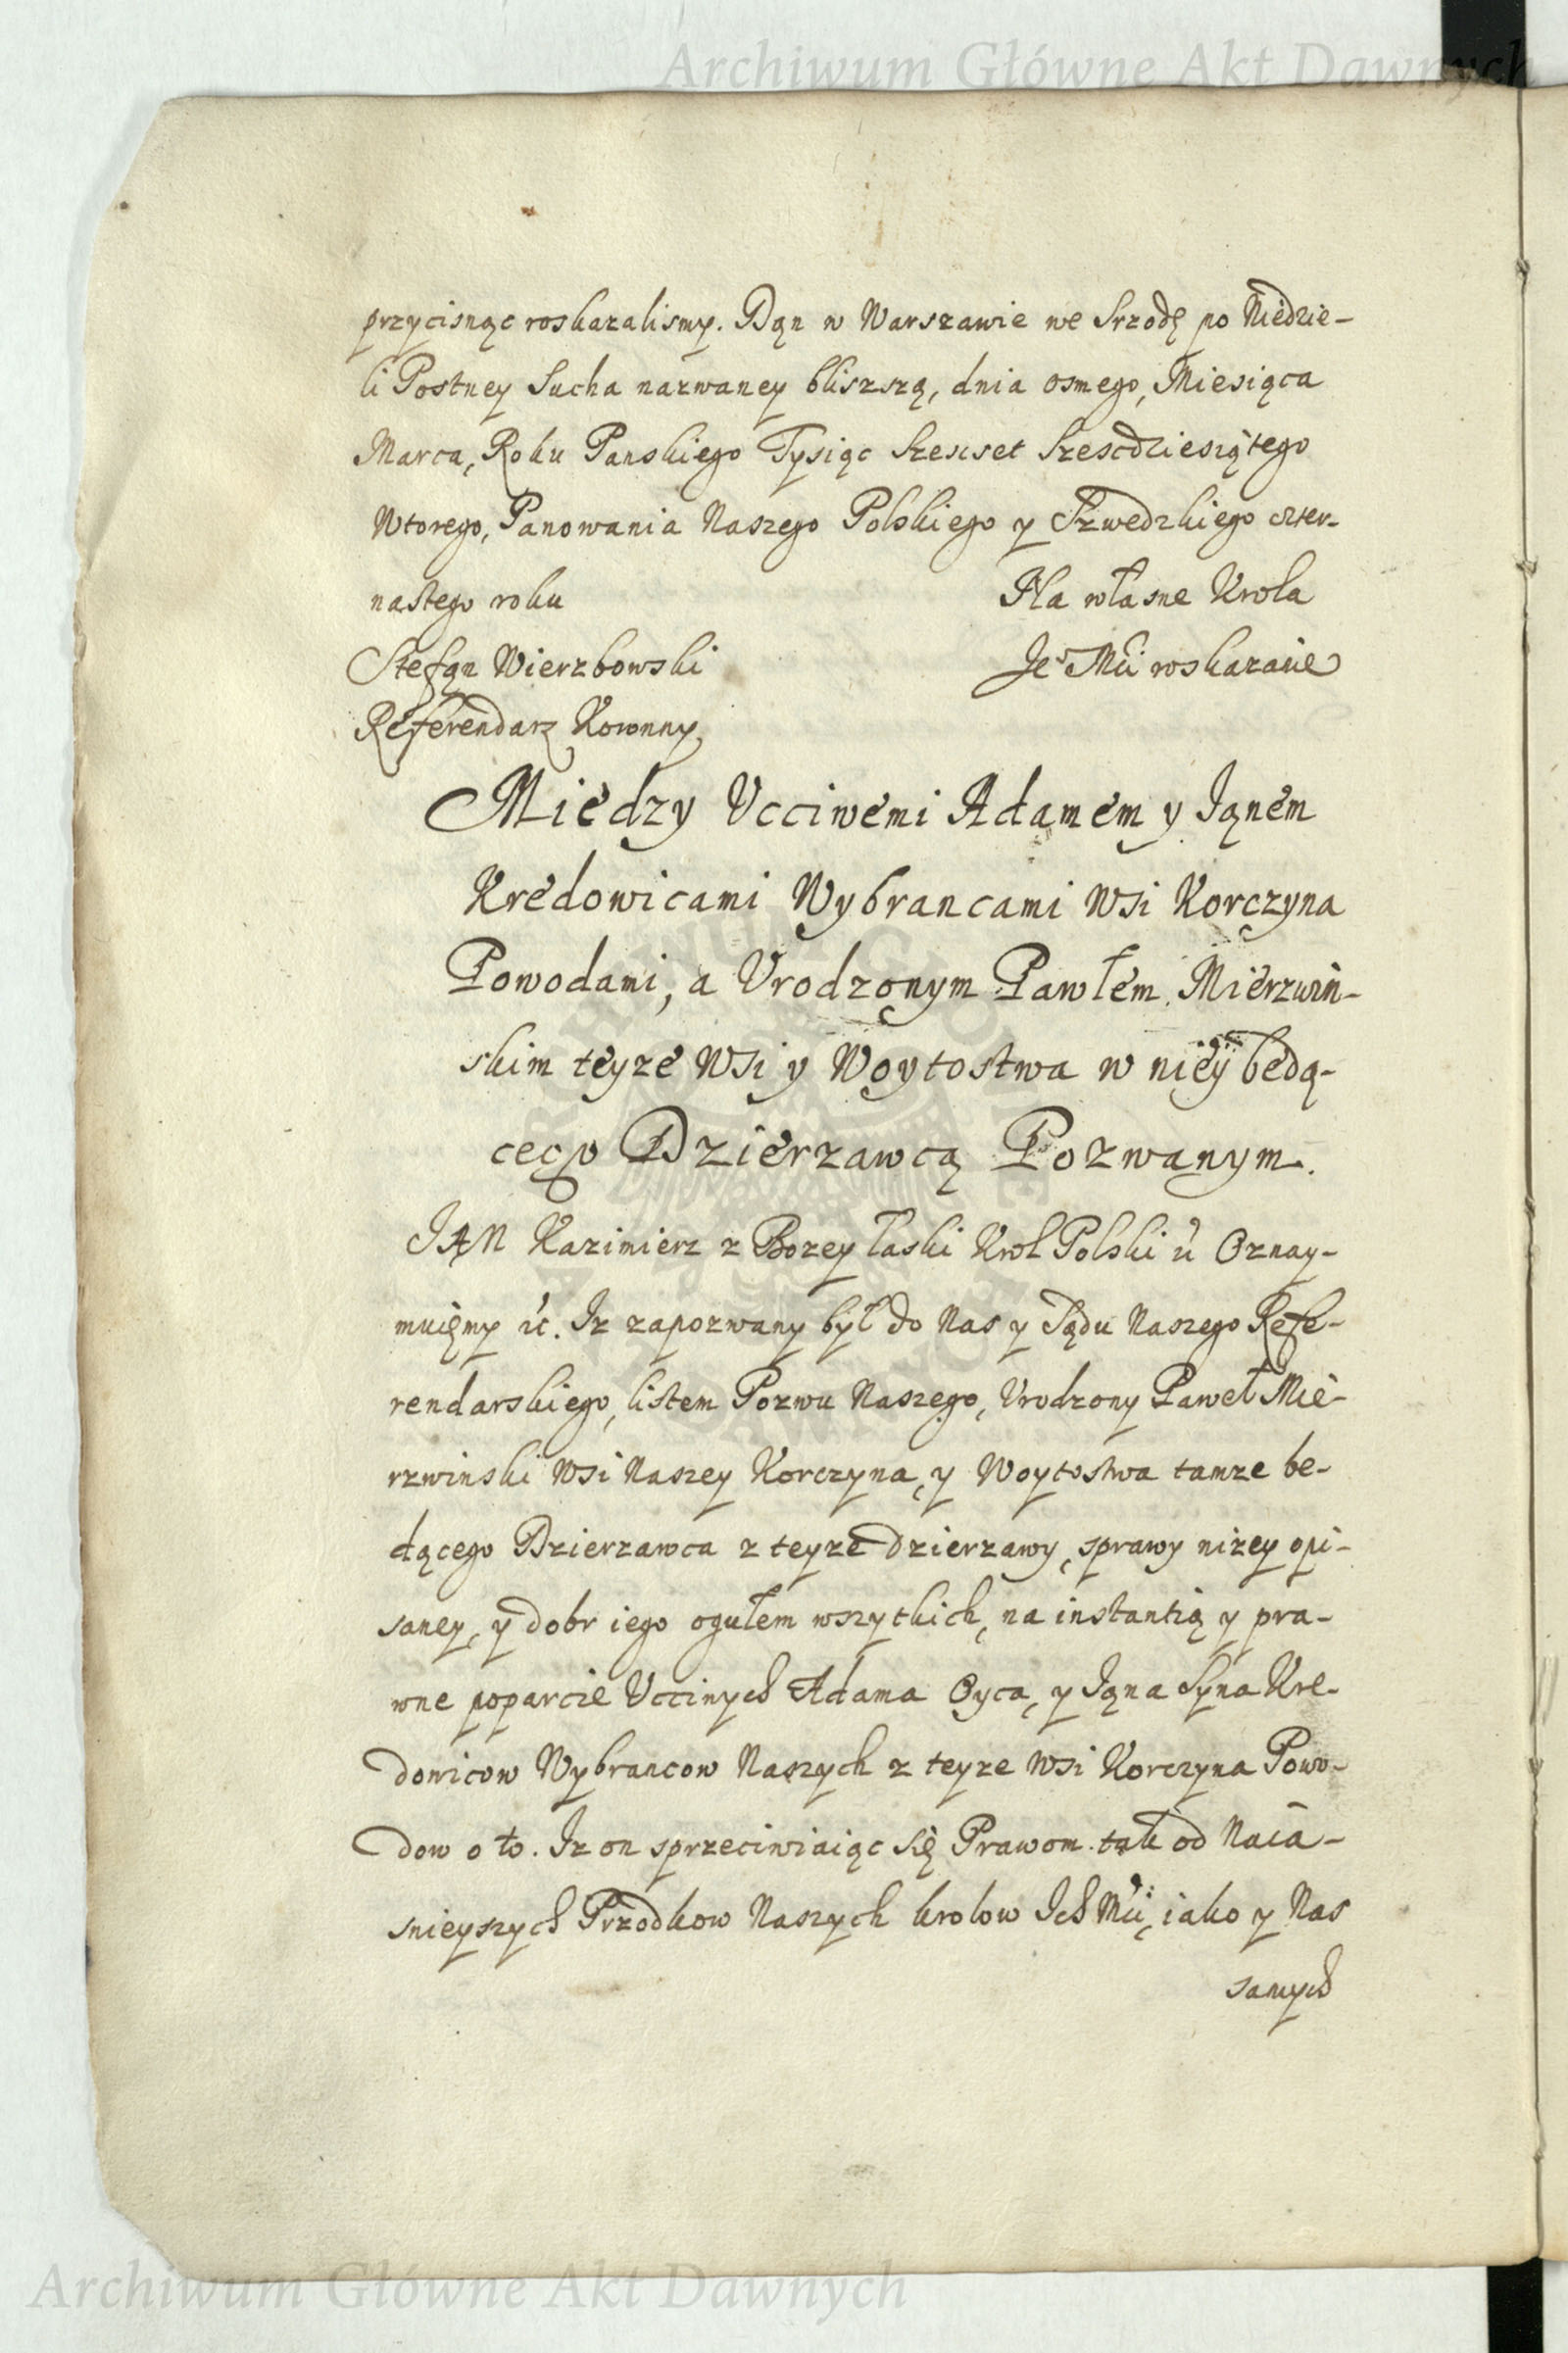 Archiwum Główne Akt Dawnych
przycisnąc roskazalismy. Dąn w Warszawie we Srzodę po Niedzie-
li Postney Sucha nazwaney bliszszą, dnia osmego, Miesiąca
Marca, Roku Panskiego Tysiąc Szescset Szescdziesiątego
Wtorego, Panowania Naszego Polskiego y Szwedzkiego czter-
nastego roku
Na własne Krola
Stefąn Wierzbowski
Je͛ Mći roskazanie
Referendarz Koronny
Miedzy Ucciwemi Adamem y Iąnem
Kredowicami Wybrancami Wsi Korczyna
Powodami, a Urodzonym Pawłem Mierzwin-
skim teyze Wsi y Woytostwa w niey bedą-
cego Dzierzawcą Pozwanym.
JAN Kazimierz z Bozey łaski Krol Polski ừc Oznay-
muięmy ừc. Iz zapozwany był do Nas y Sądu Naszego Refe-
rendarskiego, listem Pozwu Naszego, Urodzony Paweł Mie-
rzwinski Wsi Naszey Korczyna, y Woytostwa tamze be-
dącego Dzierzawca z teyze dzierzawy, sprawy nizey opi-
saney, y dobr iego ogułem wszytkich, na instantią y pra-
wne poparcie Uccinych Adama Oyca, y Iąna Syna Kre-
dowicow Wybrancow Naszych z teyze Wsi Korczyna Powo-
dow o to. Iz on sprzeciwiaiąc się Prawom tak od Naia-
snieyszych Przodkow Naszych krolow Ich Mći, iako y Nas
samych
Archiwum Główne Akt Dawnych